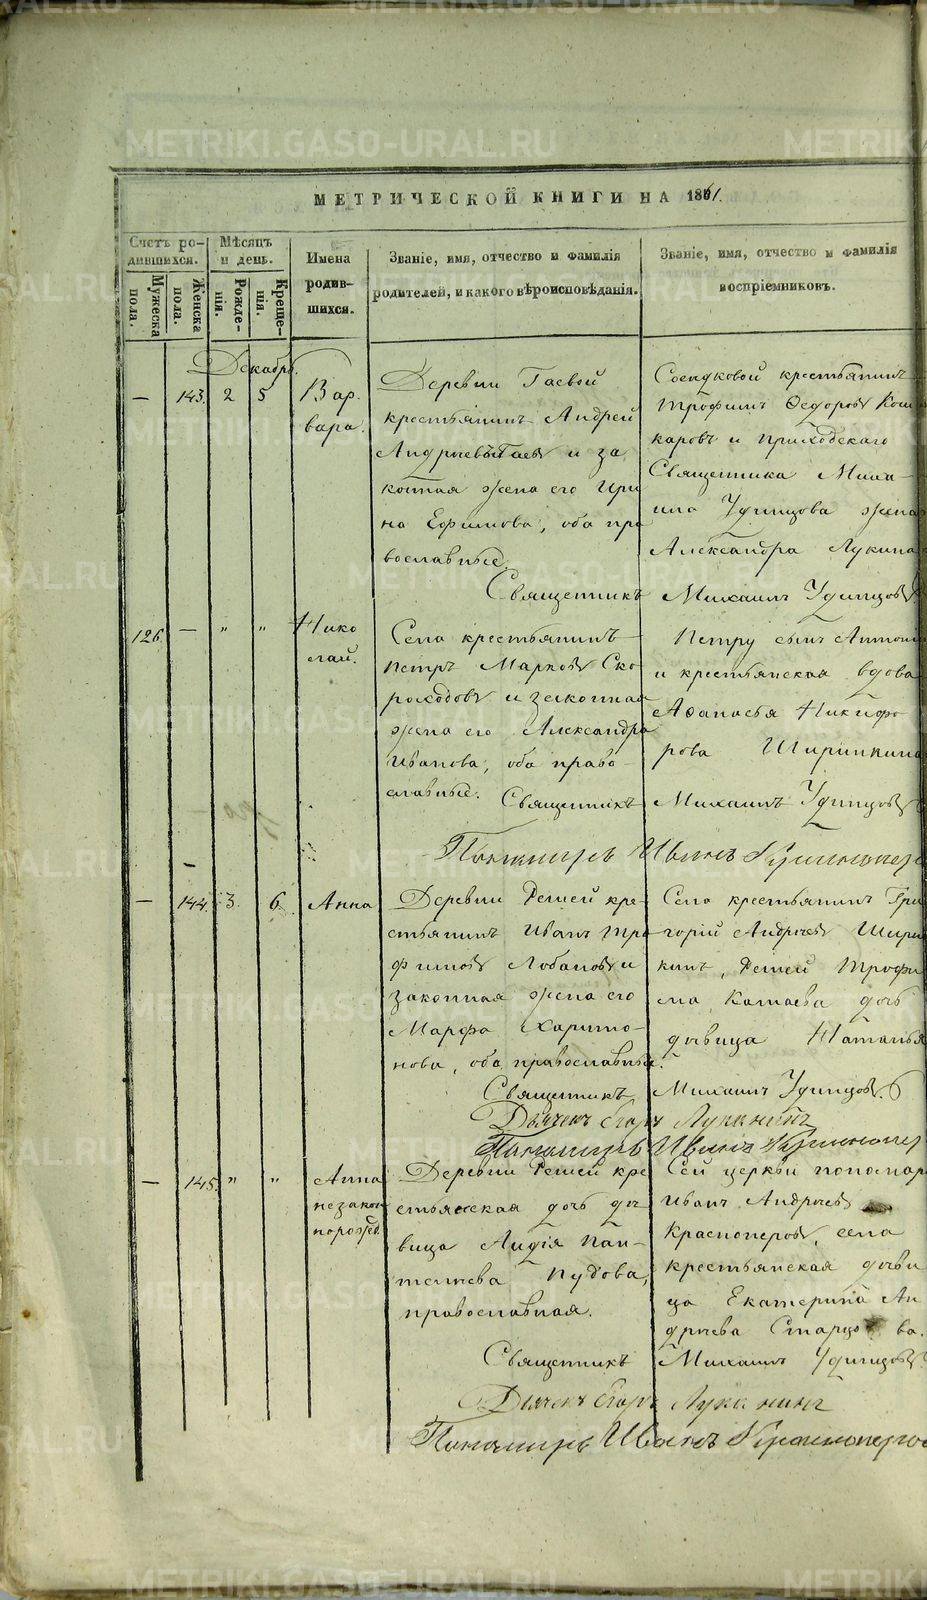 МЕТРИЧЕСКОЙ КНИГИ НА 1861.
Счетъ ро-
дившихся.
Мужеска
пола.
Женска
пола.
Мѣсяцъ
и день.
Рожде-
нія.
Креще-
нія.
Имена
родив-
шихся.
Званіе, имя, отчество и фамилія
родителей, и какого вѣроисповѣданія.
Званіе, имя, отчество и фамилія
воспріемниковъ.
Декабрь.
— 143. 2 5
Вар-
вара.
Деревни Гаевой
крестьянинъ Андрей
Андреевъ Гаевъ и за
конная жена его Ири
на Ефимова, оба пра
вославные.
крестьянинъ
Трофимъ Ѳедоровъ
каровъ и приходскаго
Священника Миха-
ила Удинцова жена
Александра Лукина
Священникъ Михаилъ Удинцовъ.
126. — " "
Нико
лай.
Села крестьянинъ
Петръ Марковъ Ско
роходовъ и законная
жена его Александра
Иванова, оба право-
славные.
Петру сынъ Антонъ
и крестьянская вдова
Афанасья Никифо
рова Ширинкина
Священникъ Михаилъ Удинцовъ
Пономарь Иванъ Краснопер
— 144. 3. 6.
Анна
Деревни Решей кре-
стьянинъ Иванъ Тро
фимовъ Лобановъ и
законная жена его
Марфа Харито-
нова, оба православные.
Села крестьянинъ Гри
горій Андреевъ Шири
кинъ, Решей Трофи
ма Катаева дочь
дѣвица Наталья
Священникъ Михаилъ Удинцовъ.
Дьячекъ Егоръ Луканинъ
Пономарь Иванъ Краснопер
— 145. " "
Анна
незакон
норожд.
Деревни Решей кре
стьянская дочь дѣ
вица Лидія Пан-
телеева Пудова,
православная.
Сей церкви пономарь
Иванъ Андреевъ
Красноперовъ, села
крестьянская дѣви
ца Екатерина Ан
дреева Старцова.
Священникъ Михаилъ Удинцовъ
Дьячекъ Егоръ Луканинъ
Пономарь Иванъ Красноперов
METRIKI.GASO-URAL.RU